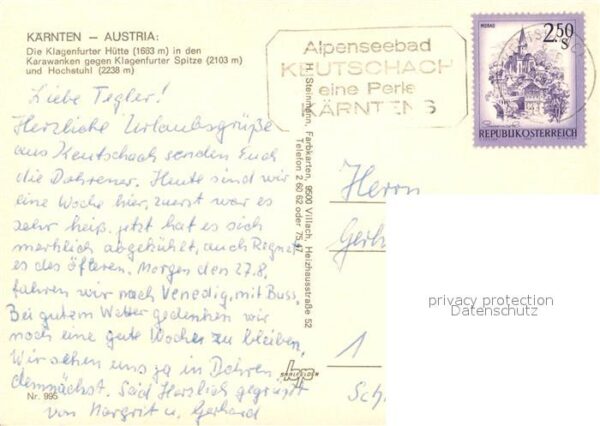 KÄRNTEN – AUSTRIA:
Die Klagenfurter Hütte (1663 m) in den
Karawanken gegen Klagenfurter Spitze (2103 m)
und Hochstuhl (2238 m)
Alpenseebad
KEUTSCHACH
eine Perle
KÄRNTENS
MURAU
2.50
S
REPUBLIK ÖSTERREICH
Liebe Tegler!
Herzliche Urlaubsgrüße
aus Keutschach senden Euch
die Dahrener. Heute sind wir
eine Woche hier, zuerst war es
sehr heiß, jetzt hat es sich
merklich abgekühlt, auch Regnet
es des Öfteren. Morgen den 27.8.
fahren wir nach Venedig, mit Buss.
Bei gutem Wetter gedenken wir
noch eine gute Woche zu bleiben.
Wir sehen uns ja in Dahren
demnächst. Seid Herzlich gegrüßt
von Margrit u. Gerhard
Nr. 995
H. Steinmann, Farbkarten, 9500 Villach, Heizhausstraße 52
Telefon 2 60 62 oder
Herrn
Gerh
1
Sch
privacy protection
Datenschutz